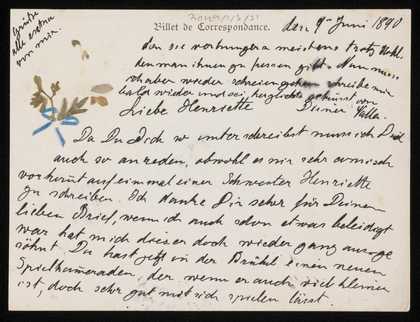 Grüße
alle extra
von mir.
Billet de Correspondance.
den 9ten Juni 1890
den sie verhungern meistens trotz
den man ihnen zu fressen gibt. Nun muss
ich aber wieder schreiben
bald wieder und sei herzlichst geküsst von
Liebe Henriette Deiner
Da Du Dich so unterschreibst muss ich Dich
auch so anreden, obwohl es mir sehr komisch
vorkommt auf einmal einer Schwester Henriette
zu schreiben. Ich danke Dir sehr für Deinen
lieben Brief, wenn ich auch schon etwas beleidigt
war hat mich dieser doch wieder ganz ausge
söhnt. Du hast jetzt in der Brühl einen neuen
Spielkameraden, der wenn er auch viel kleiner
ist, doch sehr gut mit sich spielen lässt.